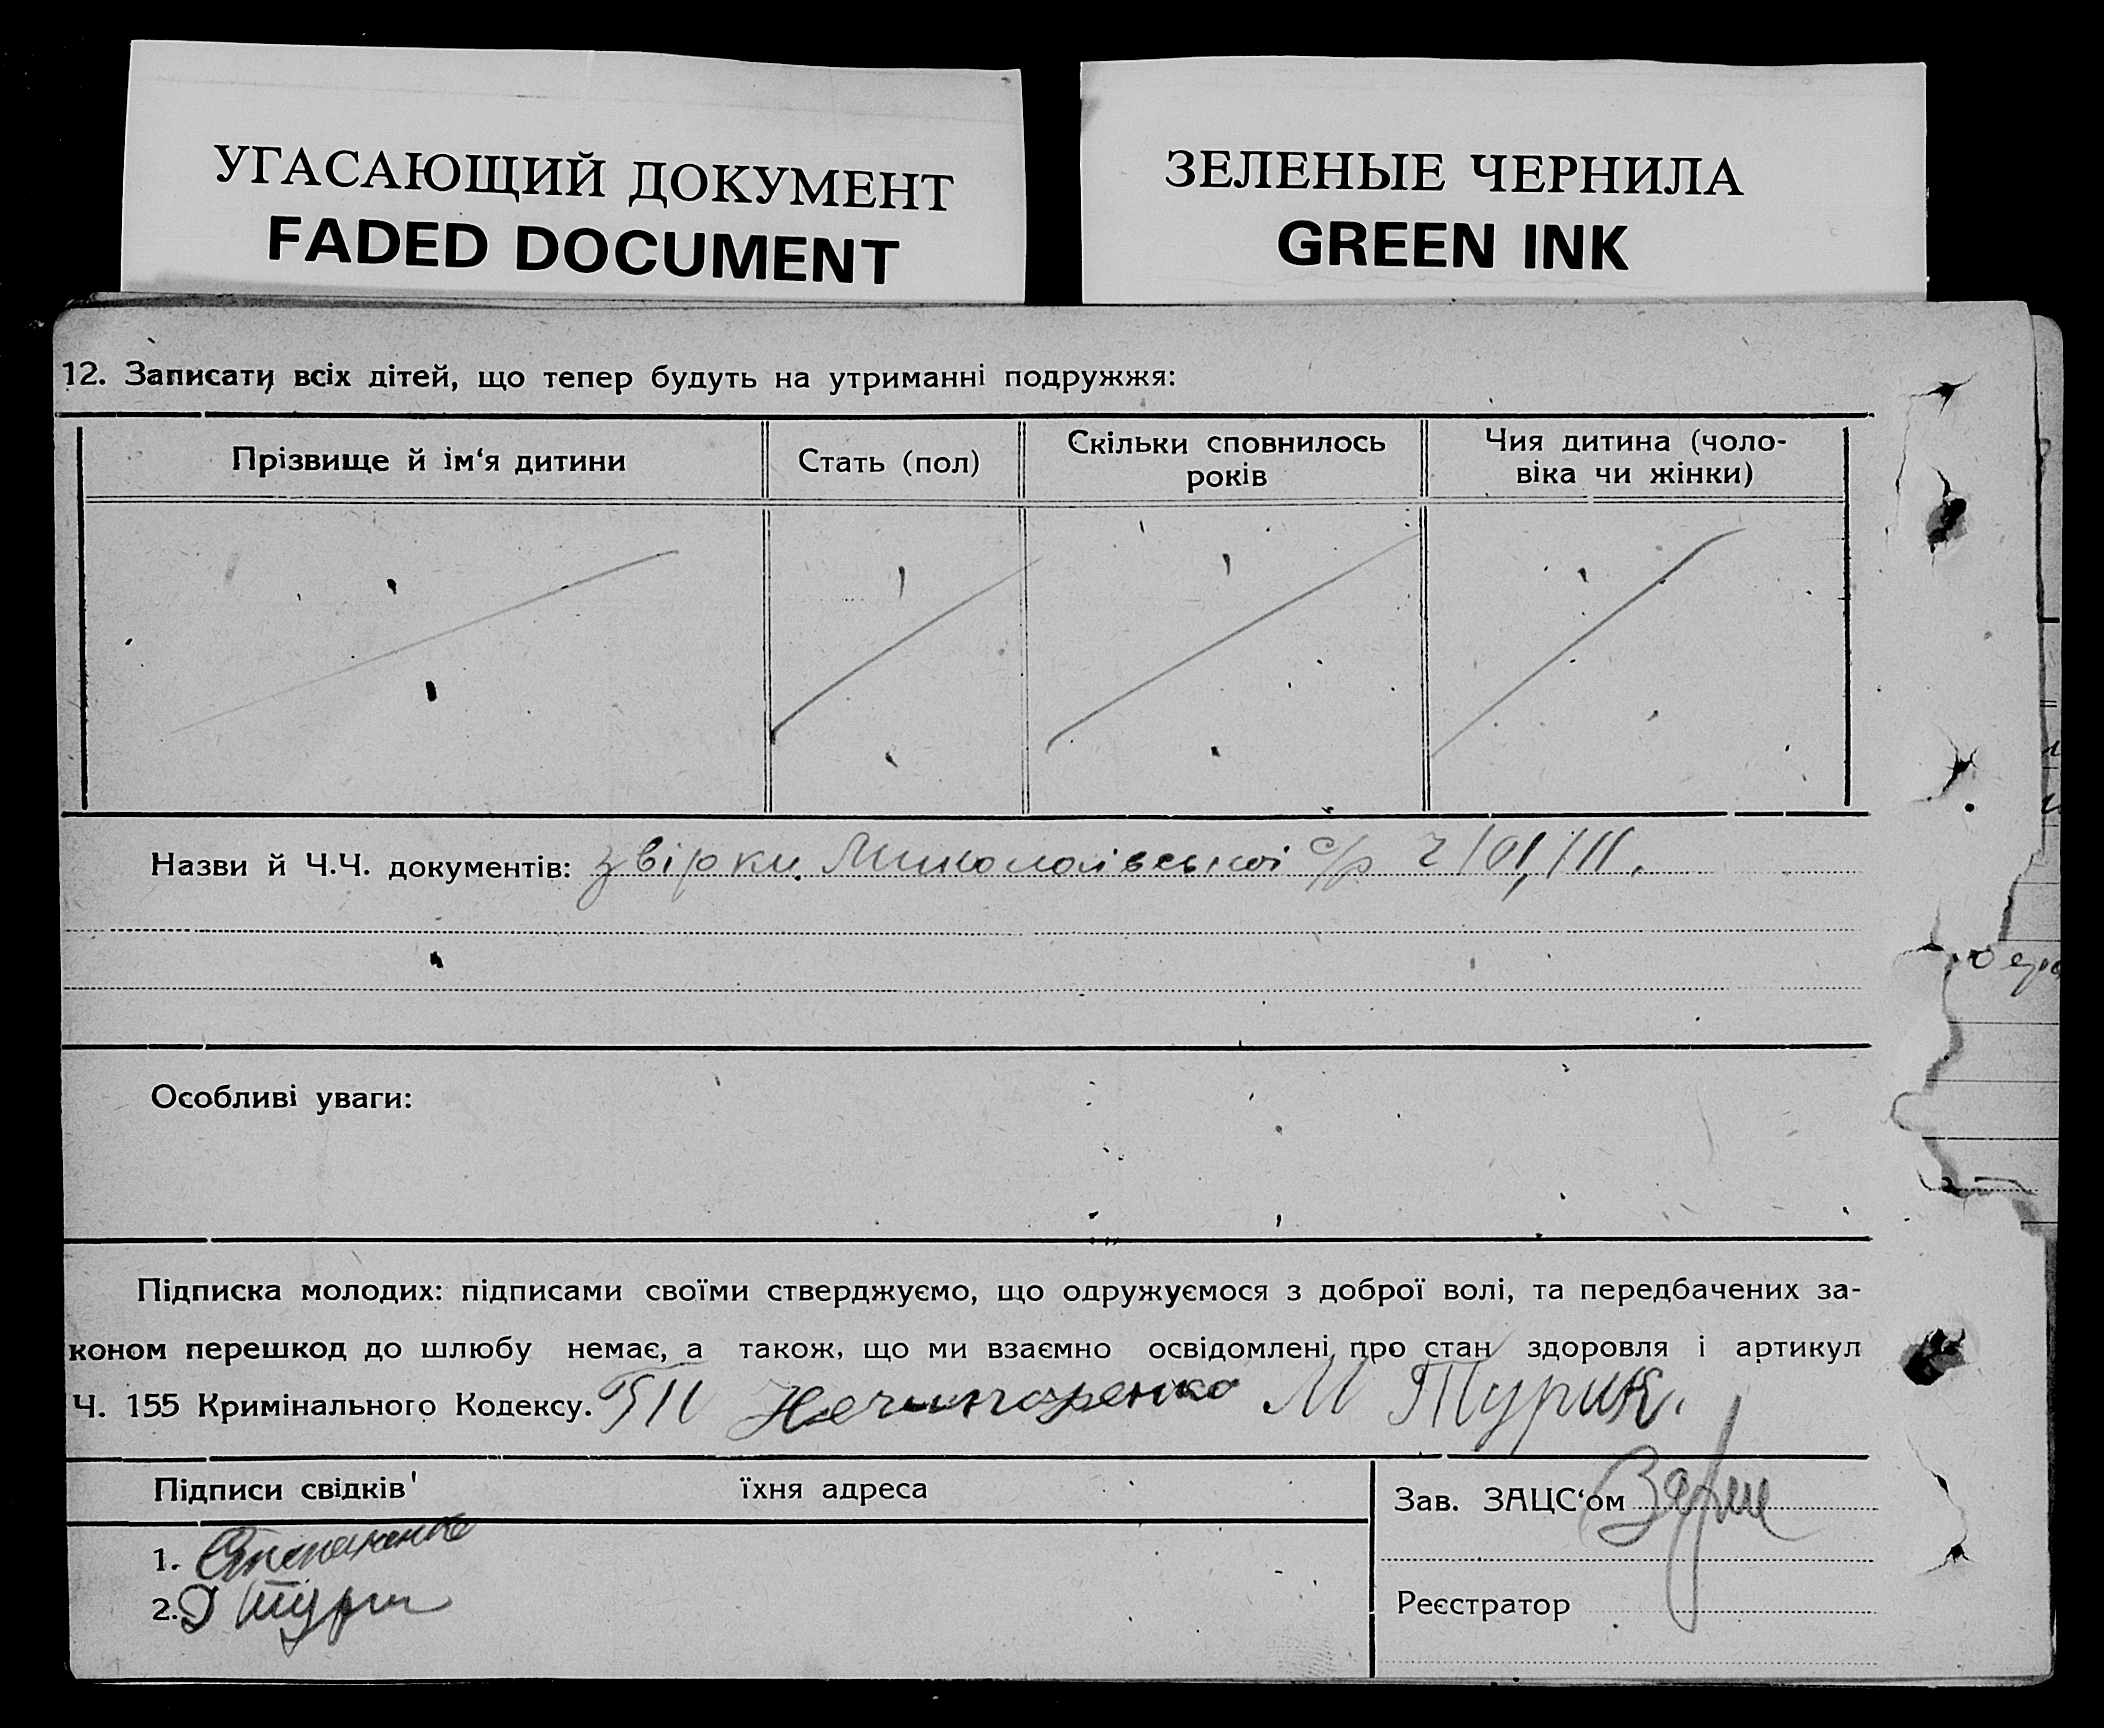 УГАСАЮЩИЙ ДОКУМЕНТ
FADED DOCUMENT
ЗЕЛЕНЫЕ ЧЕРНИЛА
GREEN INK
12. Записати всіх дітей, що тепер будуть на утриманні подружжя:
Прізвище й ім‘я дитини
Стать (пол)
Скільки сповнилось
років
Чия дитина (чоло-
віка чи жінки)
Назви й Ч.Ч. документів: звірки Миколаівської с/р
Особливі уваги:
Підписка молодих: підписами своїми стверджуємо, що одружуємося з доброї волі, та передбачених за-
коном перешкод до шлюбу немає, а також, що ми взаємно освідомлені про стан здоровля і артикул
Ч. 155 Кримінального Кодексу. Нечипоренко М Турик.
Підписи свідків їхня адреса
Зав. ЗАЦС‘ом
1. Степаненко
2.
Реєстратор